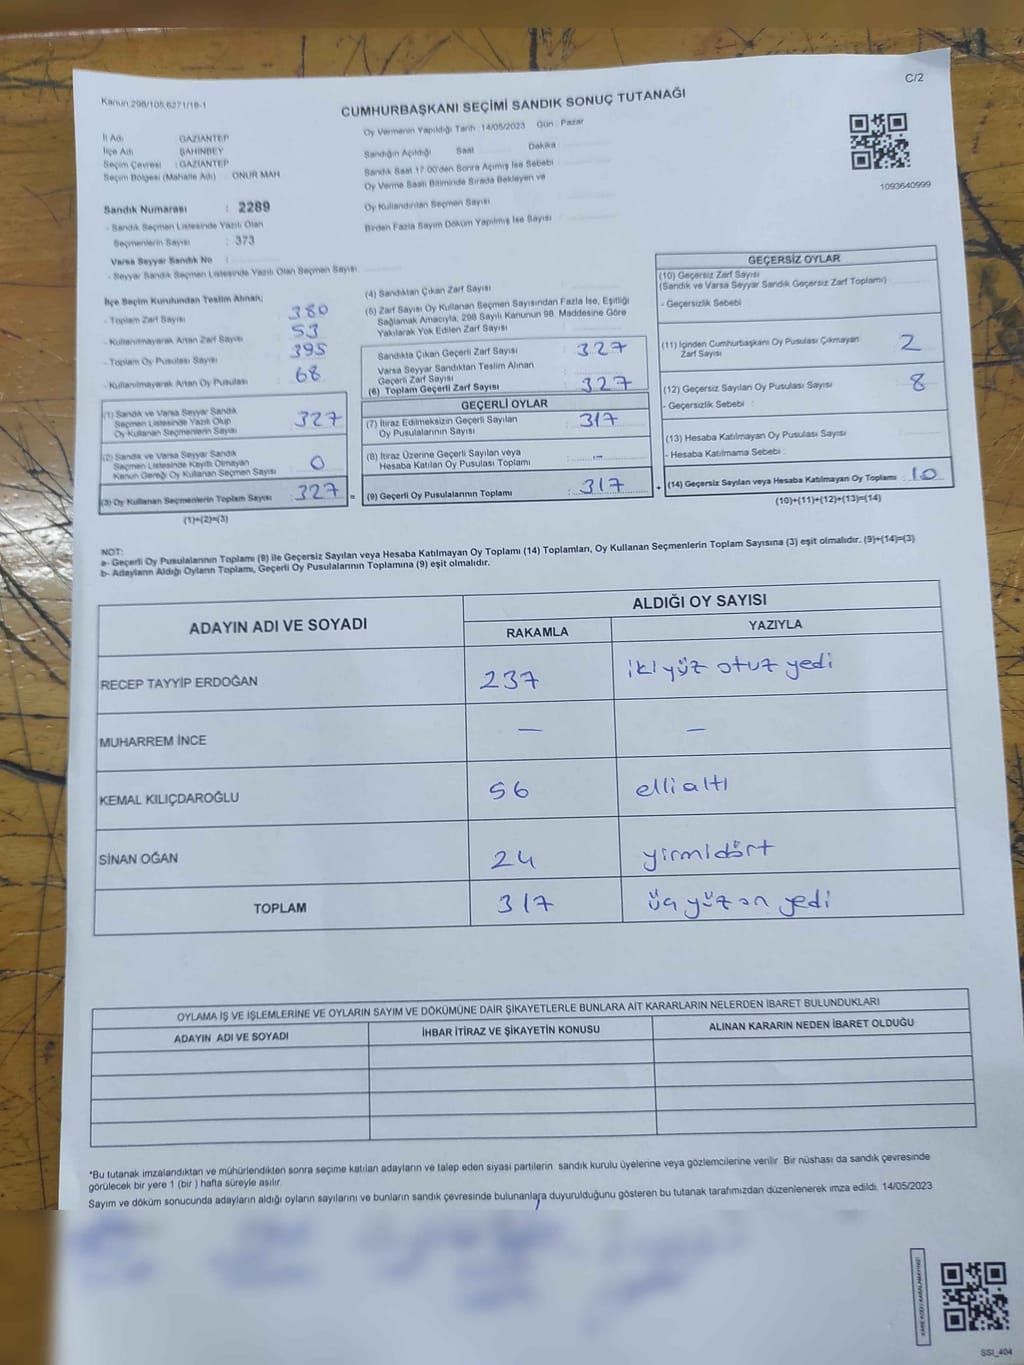 C/2
Kanun:298/105,6271/18-1
CUMHURBAŞKANI SEÇİMİ SANDIK SONUÇ TUTANAĞI
İl Adı : GAZİANTEP
İlçe Adı : ŞAHİNBEY
Seçim Çevresi : GAZİANTEP
Seçim Bölgesi (Mahalle Adı) : ONUR MAH
Sandık Numarası : 2289
- Sandık Seçmen Listesinde Yazılı Olan
Seçmenlerin Sayısı : 373
Varsa Seyyar Sandık No :
- Seyyar Sandık Seçmen Listesinde Yazılı Olan Seçmen Sayısı
Oy Vermenin Yapıldığı Tarih : 14/05/2023 Gün : Pazar
Sandığın Açıldığı Saat Dakika
Sandık Saat 17:00'den Sonra Açılmış İse Sebebi
Oy Verme Saati Bitiminde Sırada Bekleyen ve
Oy Kullandırılan Seçmen Sayısı
Birden Fazla Sayım Döküm Yapılmış İse Sayısı
1093640999
İlçe Seçim Kurulundan Teslim Alınan;
- Toplam Zarf Sayısı 380
- Kullanılmayarak Artan Zarf Sayısı 53
- Toplam Oy Pusulası Sayısı 395
- Kullanılmayarak Artan Oy Pusulası 68
(1) Sandık ve Varsa Seyyar Sandık
Seçmen Listesinde Yazılı Olup
Oy Kullanan Seçmenlerin Sayısı 327
(2) Sandık ve Varsa Seyyar Sandık
Seçmen Listesinde Kayıtlı Olmayan
Kanun Gereği Oy Kullanan Seçmen Sayısı 0
(3) Oy Kullanan Seçmenlerin Toplam Sayısı : 327 =
(1)+(2)=(3)
(4) Sandıktan Çıkan Zarf Sayısı
(5) Zarf Sayısı Oy Kullanan Seçmen Sayısından Fazla İse, Eşitliği
Sağlamak Amacıyla, 298 Sayılı Kanunun 98. Maddesine Göre
Yakılarak Yok Edilen Zarf Sayısı
Sandıkta Çıkan Geçerli Zarf Sayısı : 327
Varsa Seyyar Sandıktan Teslim Alınan
Geçerli Zarf Sayısı
(6) Toplam Geçerli Zarf Sayısı : 327
GEÇERLİ OYLAR
(7) İtiraz Edilmeksizin Geçerli Sayılan
Oy Pusulalarının Sayısı : 317
(8) İtiraz Üzerine Geçerli Sayılan veya
Hesaba Katılan Oy Pusulası Toplamı : -
(9) Geçerli Oy Pusulalarının Toplamı : 317 +
GEÇERSİZ OYLAR
(10) Geçersiz Zarf Sayısı
(Sandık ve Varsa Seyyar Sandık Geçersiz Zarf Toplamı)
- Geçersizlik Sebebi :
(11) İçinden Cumhurbaşkanı Oy Pusulası Çıkmayan
Zarf Sayısı 2
(12) Geçersiz Sayılan Oy Pusulası Sayısı 8
- Geçersizlik Sebebi :
(13) Hesaba Katılmayan Oy Pusulası Sayısı
- Hesaba Katılmama Sebebi :
(14) Geçersiz Sayılan veya Hesaba Katılmayan Oy Toplamı : 10
(10)+(11)+(12)+(13)=(14)
NOT:
a- Geçerli Oy Pusulalarının Toplamı (9) ile Geçersiz Sayılan veya Hesaba Katılmayan Oy Toplamı (14) Toplamları, Oy Kullanan Seçmenlerin Toplam Sayısına (3) eşit olmalıdır. (9)+(14)=(3)
b- Adayların Aldığı Oyların Toplamı, Geçerli Oy Pusulalarının Toplamına (9) eşit olmalıdır.
ADAYIN ADI VE SOYADI ALDIĞI OY SAYISI
RAKAMLA YAZIYLA
RECEP TAYYİP ERDOĞAN 237 ikiyüz otuz yedi
MUHARREM İNCE — —
KEMAL KILIÇDAROĞLU 56 ellialtı
SİNAN OĞAN 24 yirmidört
TOPLAM 317 üçyüzon yedi
OYLAMA İŞ VE İŞLEMLERİNE VE OYLARIN SAYIM VE DÖKÜMÜNE DAİR ŞİKAYETLERLE BUNLARA AİT KARARLARIN NELERDEN İBARET BULUNDUKLARI
ADAYIN ADI VE SOYADI İHBAR İTİRAZ VE ŞİKAYETİN KONUSU ALINAN KARARIN NEDEN İBARET OLDUĞU
*Bu tutanak imzalandıktan ve mühürlendikten sonra seçime katılan adayların ve talep eden siyasi partilerin sandık kurulu üyelerine veya gözlemcilerine verilir. Bir nüshası da sandık çevresinde
görülecek bir yere 1 (bir) hafta süreyle asılır.
Sayım ve döküm sonucunda adayların aldığı oyların sayılarını ve bunların sandık çevresinde bulunanlara duyurulduğunu gösteren bu tutanak tarafımızdan düzenlenerek imza edildi. 14/05/2023
KARE KODU KARALAMAYINIZ!
SSI_404